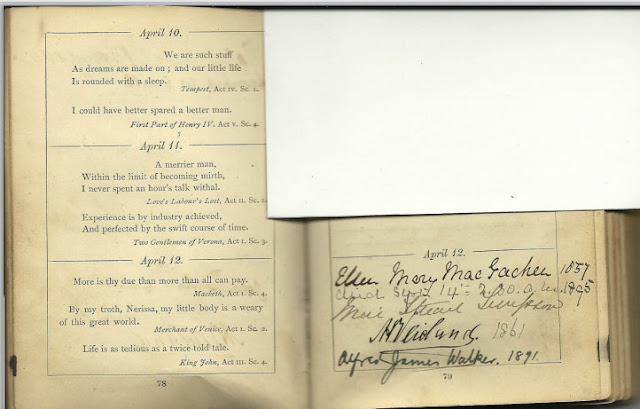 April 10.
We are such stuff
As dreams are made on; and our little life
Is rounded with a sleep.
Tempest, Act IV. Sc. 1.
I could have better spared a better man.
First Part of Henry IV. Act V. Sc. 4.
April 11.
A merrier man,
Within the limit of becoming mirth,
I never spent an hour's talk withal.
Love's Labour's Lost, Act II. Sc.
Experience is by industry achieved,
And perfected by the swift course of time.
Two Gentlemen of Verona, Act I. Sc. 3.
April 12.
More is thy due than more than all can pay.
Macbeth, Act I. Sc. 4.
By my troth, Nerissa, my little body is a weary
of this great world.
Merchant of Venice, Act I. Sc. 2.
Life is as tedious as a twice-told tale.
King John, Act III. Sc. 4.
78
April 12.
Ellen Mary MacGachen 1857
died Sept 14th 2.30 a.m.
1861
Alfred James Walker. 1891.
79